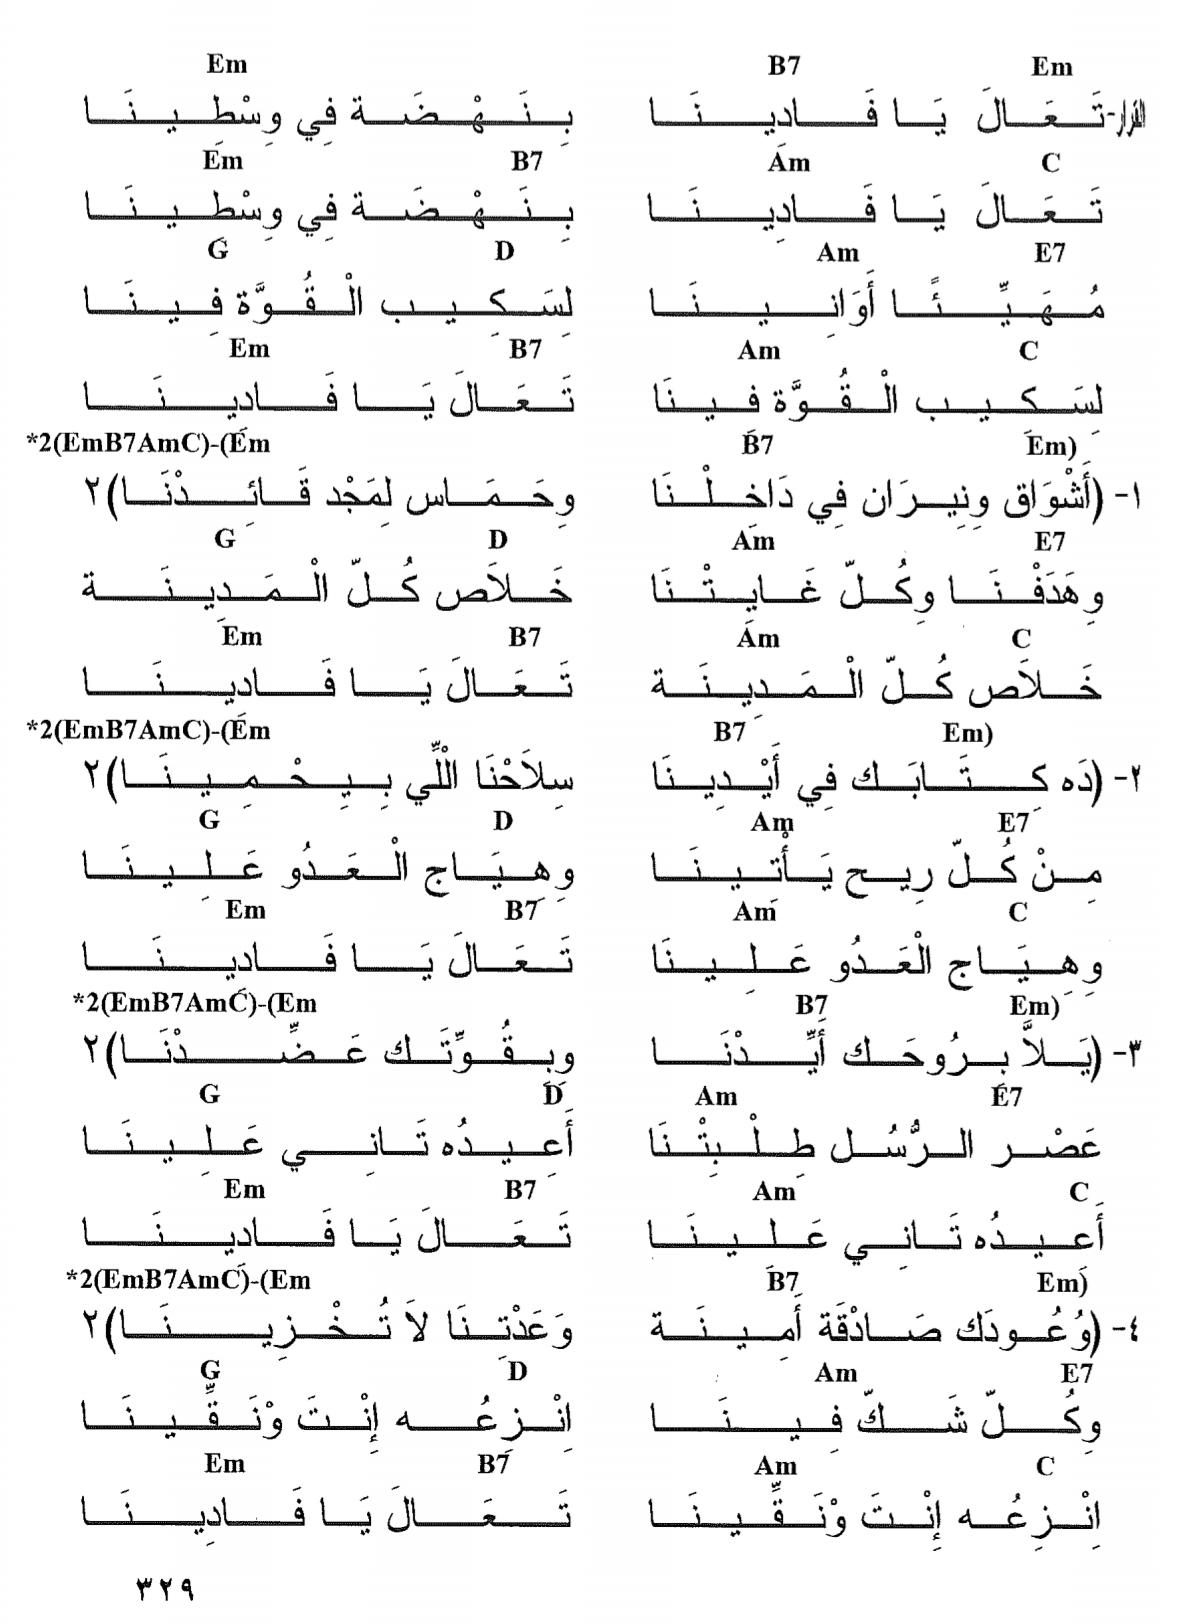 Em B7 Em
القرار- تَعَالَ يَا فَادينَا بِنَهْضَة فِي وِسْطِينَا
C Am B7 Em
تَعَالَ يَا فَادِينَا بِنَهْضَة فِي وِسْطِينَا
E7 Am D G
مُهَيِّئًا أَوَانِينَا لِسَكِيب الْقُوَّة فِينَا
C Am B7 Em
لِسَكيب الْقُوَّة فينَا تَعَالَ يَا فَادينَا
Em) B7 *2(EmB7AmC)-(Em
١- (أَشْوَاق ونِيرَان فِي دَاخلْنَا وحَمَاس لِمَجْد قَائِدْنَا)٢
E7 Am D G
وهَدَفْنَا وكُلّ غَايِتْنَا خَلاَص كُلّ الْمَدينَة
C Am B7 Em
خَلاَص كُلّ الْمَدِينَة تَعَالَ يَا فَادينَا
Em) B7 *2(EmB7AmC)-(Em
٢- (دَه كِتَابَك فِي أَيْدِينَا سِلاَحْنَا اللِّي بِيِحْمِينَا)٢
E7 Am D G
مِنْ كُلّ رِيح يَأْتينَا وهِيَاج الْعَدُو عَلِينَا
C Am B7 Em
وِهِيَاج الْعَدُو عَلِينَا تَعَالَ يَا فَادينَا
Em) B7 *2(EmB7AmC)-(Em
٣- (يَلاَّ برُوحَك أَيِّدْنَا وبقُوِّتَك عَضِّدْنَا)٢
E7 Am D G
عَصْر الرُّسُل طِلْبِتْنَا أَعِيدُه تَانِي عَلِينَا
C Am B7 Em
أَعيدُه تَانِي عَلينَا تَعَالَ يَا فَادينَا
Em) B7 *2(EmB7AmC)-(Em
٤- (وُعُودَك صَادْقَة أَمِينَة وَعَدْتِنَا لاَ تُخْزِينَا)٢
E7 Am D G
وكُلّ شَكّ فِينَا اِنْزعُه إِنْتَ وْنَقِّينَا
C Am B7 Em
اِنْزِعُه إِنْتَ وْنَقِّينَا تَعَالَ يَا فَادِينَا
٣٢٩